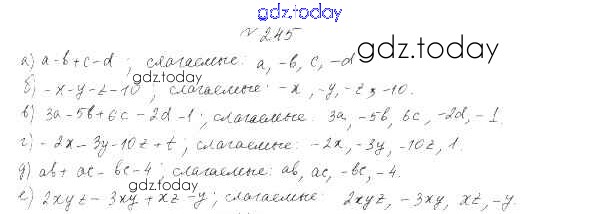 gdz.today
№ 245
а) a-b+c-d ; слагаемые: a, -b, c, -d
gdz.today
б) -x-y-z-10 ; слагаемые: -x, -y, -z, -10.
gdz.today
в) 3a-5b+6c-2d-1; слагаемые: 3a, -5b, 6c, -2d, -1.
г) -2x-3y-10z+t; слагаемые: -2x, -3y, -10z, 1.
д) ab+ac-bc-4; слагаемые: ab, ac, -bc, -4.
gdz.today
е) 2xyz-3xy+xz-y; слагаемые: 2xyz, -3xy, xz, -y.
gdz.today